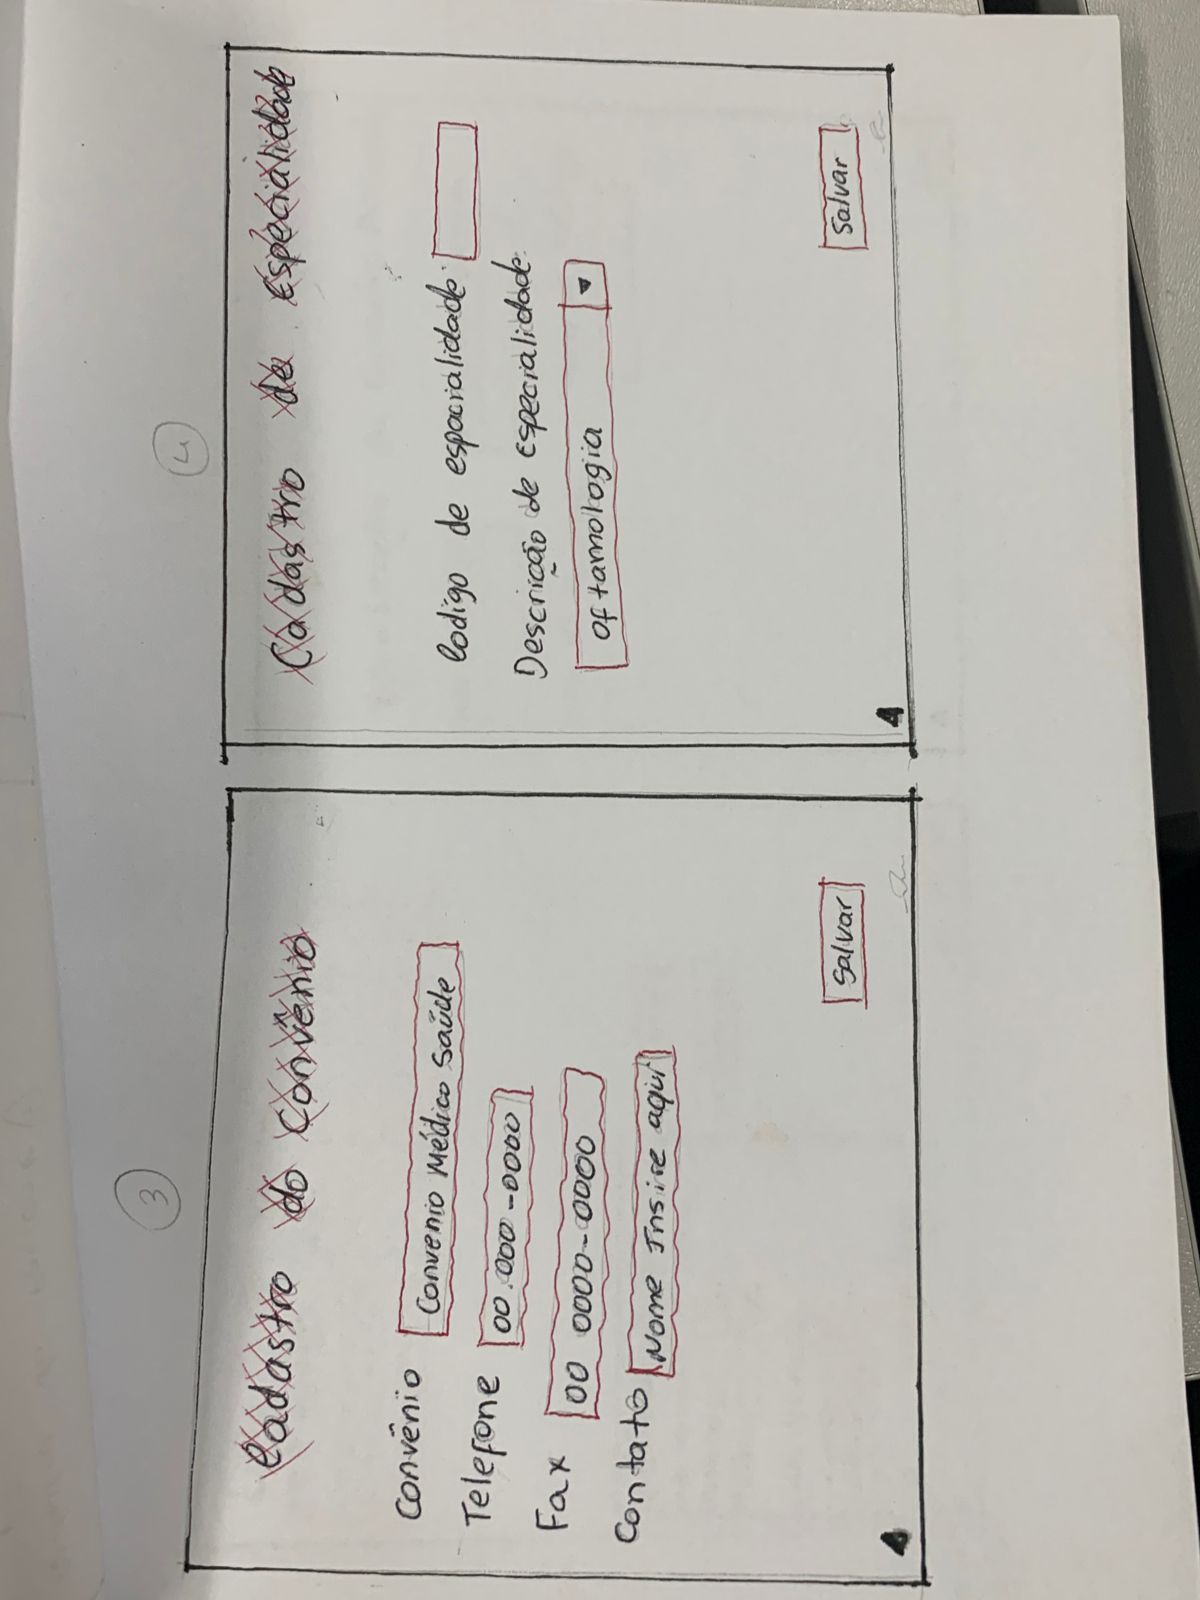 3
Cadastro do Convênio
Convênio Convenio Médico Saúde
Telefone 00.000-0000
Fax 00 0000-0000
Contato Nome Insire aqui
Salvar
4
Cadastro de Especialidade
Codigo de espacialidade:
Descrição de especialidade:
Oftamologia
Salvar